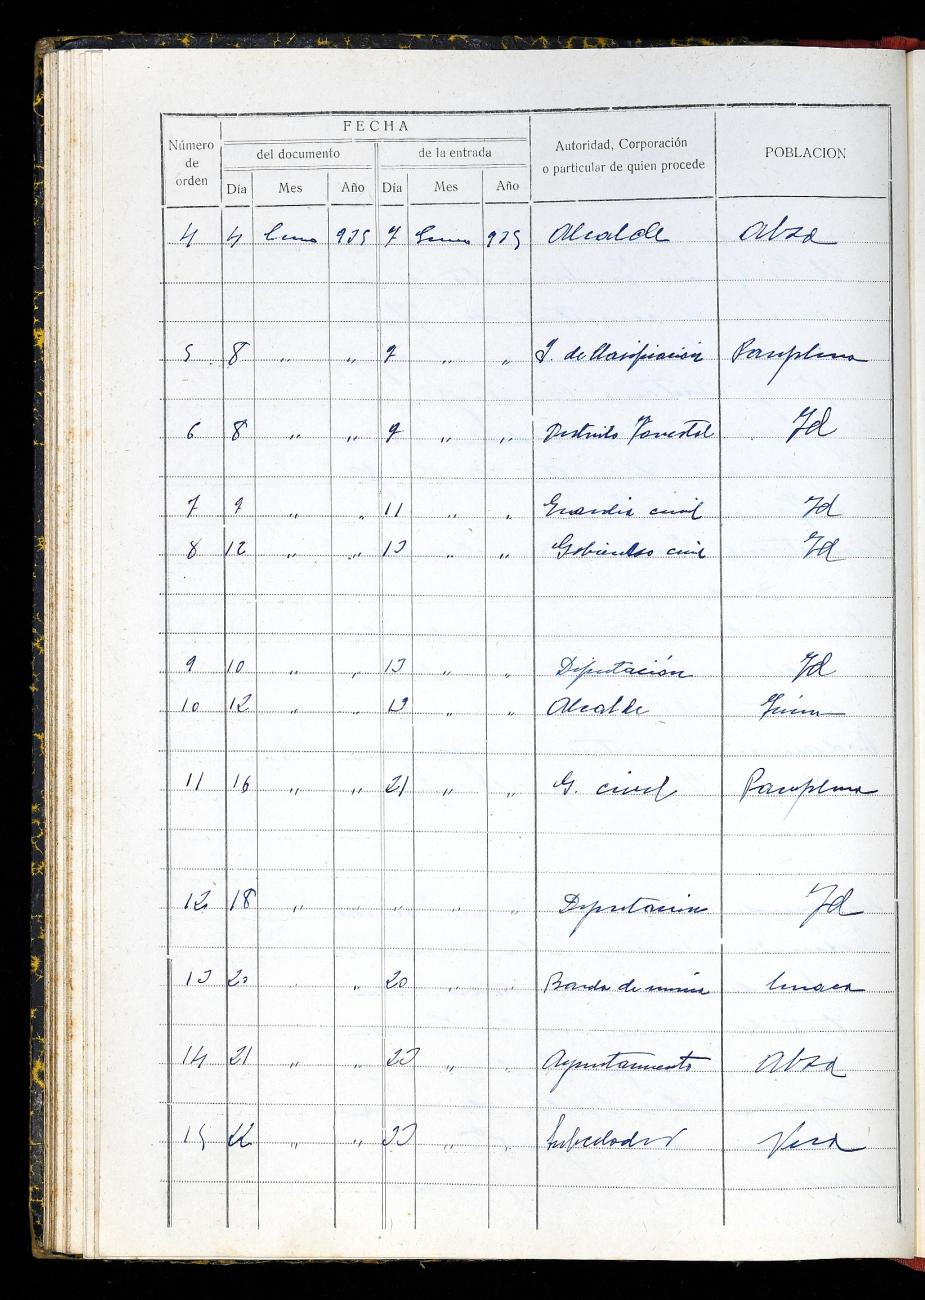 Número de orden | FECHA | Autoridad, Corporación o particular de quien procede | POBLACION
del documento | de la entrada
Día | Mes | Año | Día | Mes | Año
4 | 4 | Enero | 935 | 7 | Enero | 935 | Alcalde
5 | 8 | " | " | 9 | " | " | J. de Clasificación | Pamplona
6 | 8 | " | " | 9 | " | " | Distrito Forestal | Id
7 | 9 | " | " | 11 | " | " | Guardia civil | Id
8 | 12 | " | " | 13 | " | " | Gobierno civil | Id
9 | 10 | " | " | 13 | " | " | Diputación | Id
10 | 12 | " | " | " | " | Alcalde
11 | 16 | " | " | 21 | " | " | G. civil | Pamplona
12 | 18 | " | " | " | " | " | Diputación | Id
13 | 20 | " | " | 20 | " | " | Banda de
14 | 21 | " | " | 23 | " | " | Ayuntamiento
15 | 22 | " | " | 23 | " | " | Subcelador | Vera